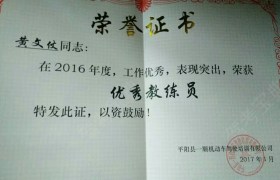 荣誉证书
黄文仗同志:
在2016年度,工作优秀,表现突出,荣获
优秀教练员
特发此证,以资鼓励!
平阳县一顺机动车驾驶培训有限公司
2017年1月